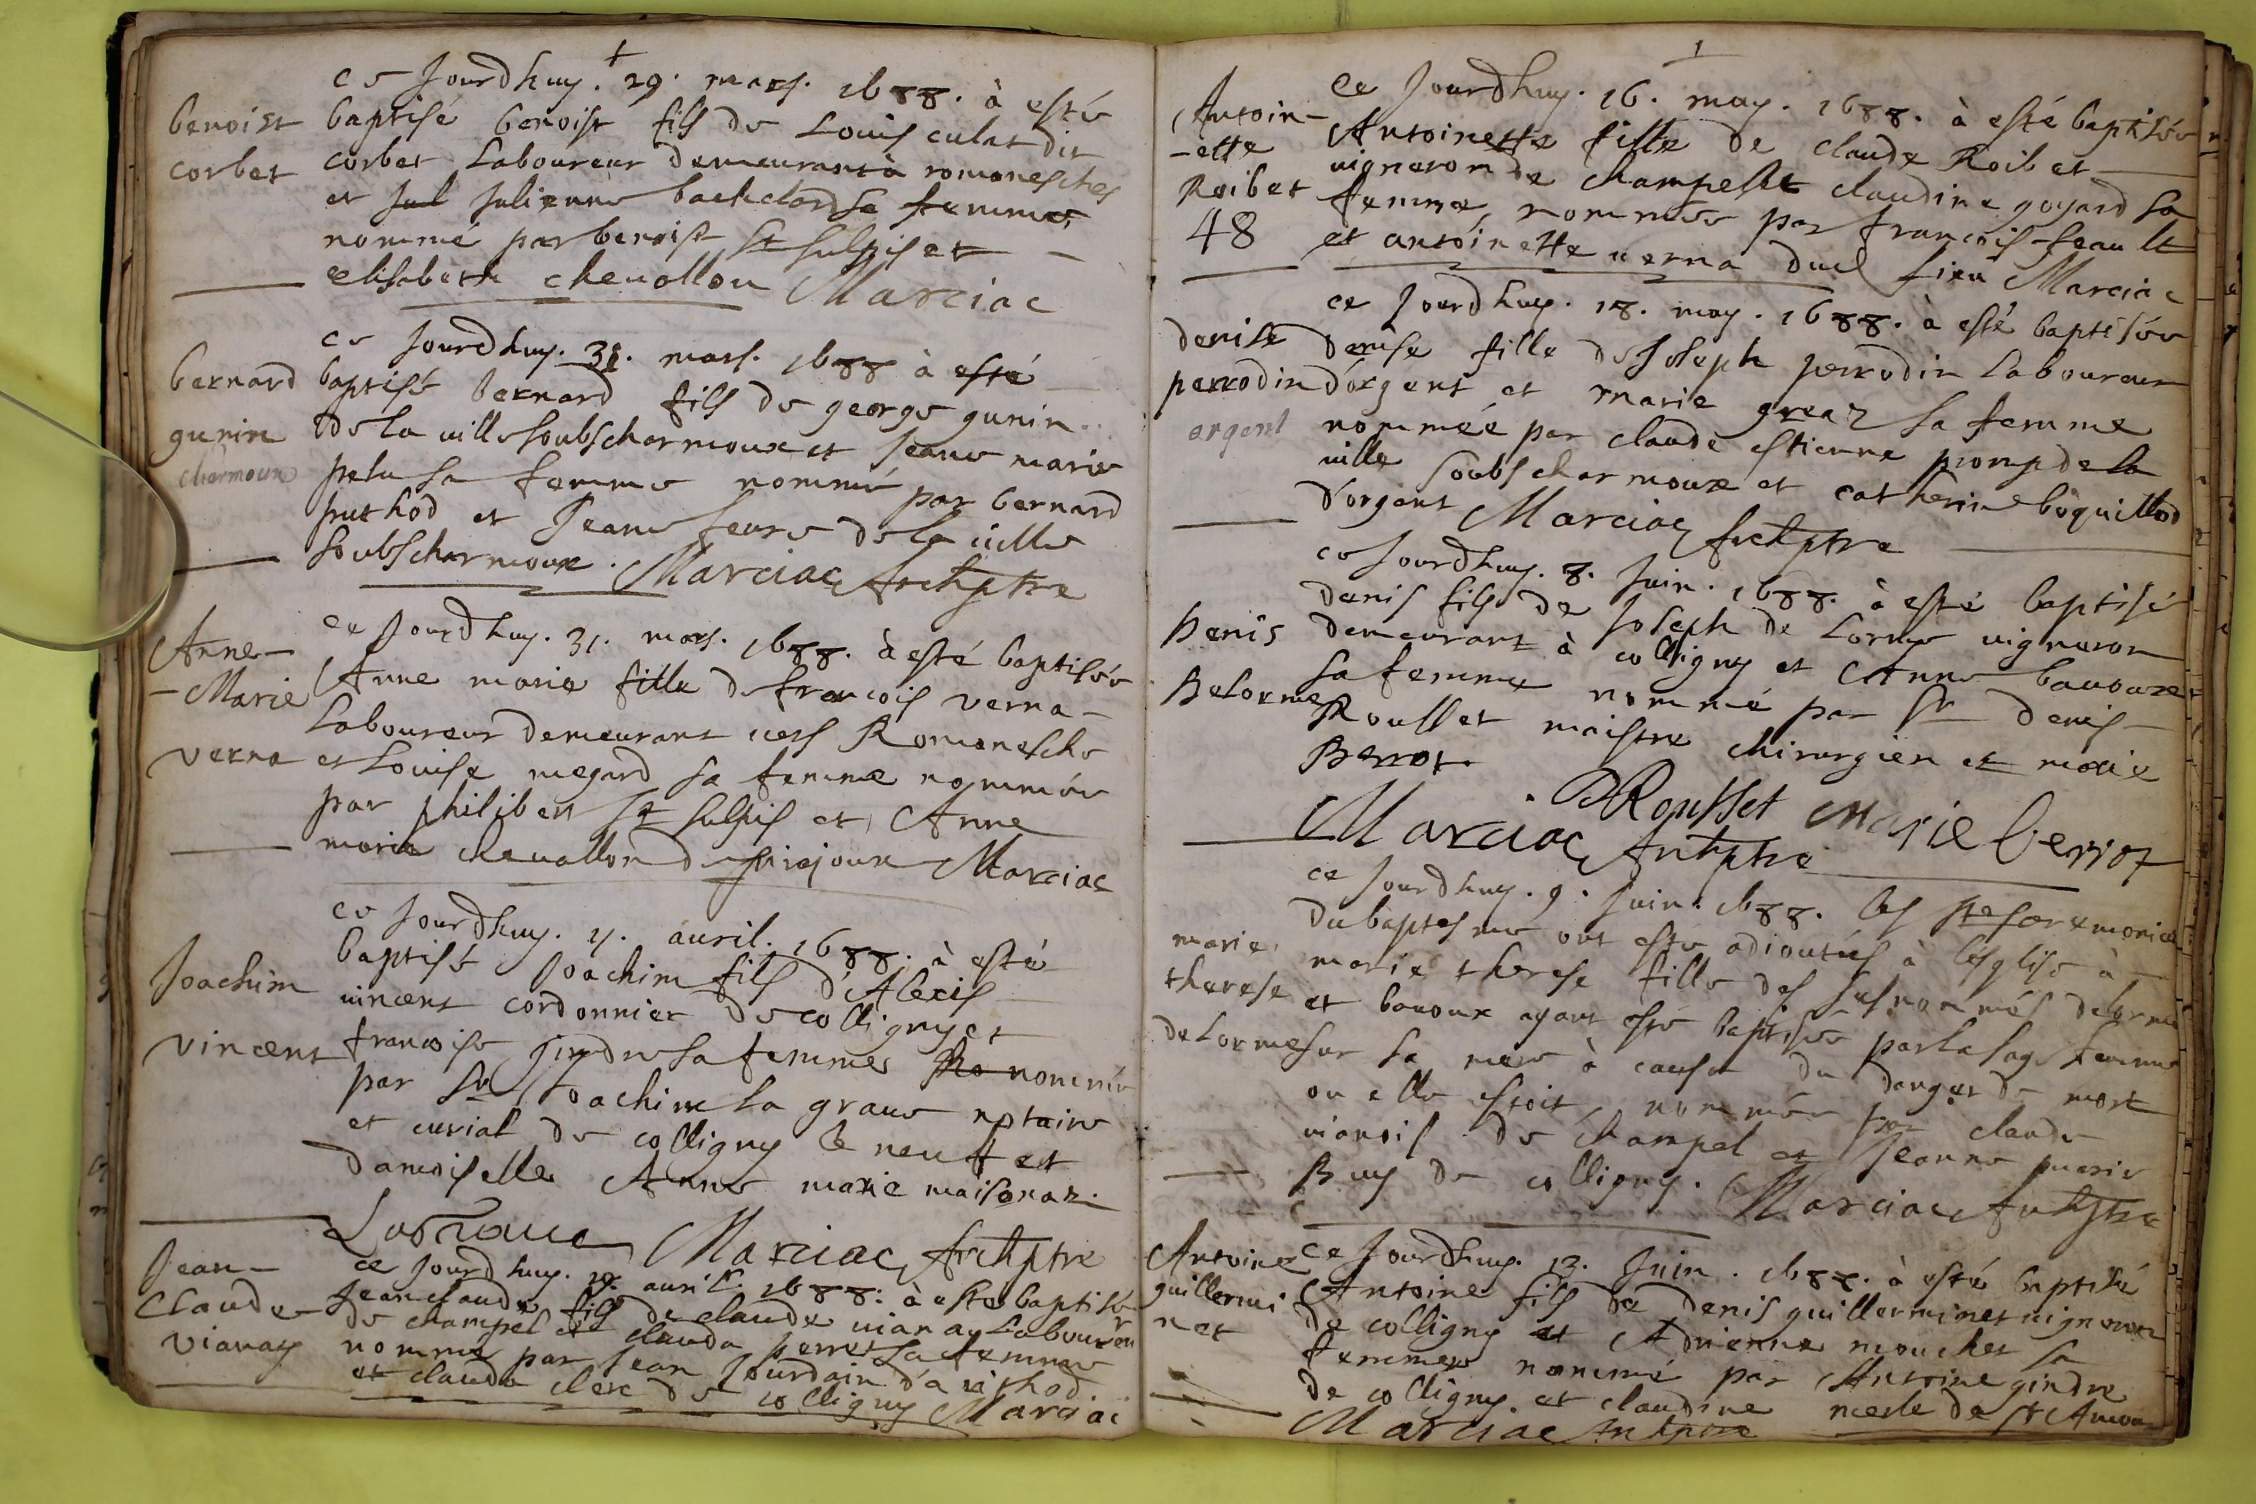 ce Jourdhuy. 29. mars. 1688. à esté
benoist baptisé benoist fils de Louis culat dit
corbet corbet Laboureur demeurant à romanesches
et Jul Julienne bachelard sa femme,
nommé par benoist St Sulpis et
elisabeth chevallon Marciac
ce Jourdhuy. 31. mars. 1688 à esté
bernard baptisé bernard fils de george gunin
gunin de la ville soubs charmoux et Jeane marie
charmoux pelu sa femme nommé par bernard
puthod et Jeane feure de la ville
soubs charmoux. Marciac Archiptre
ce Jourdhuy. 31. mars. 1688. à esté baptisée
Anne- Anne marie fille de françois verna
-Marie Laboureur demeurant vers Romanesche
verna et Louise megard sa femme nommée
par philibert St Sulpis et Anne
marie chevallon de pirajoux Marciac
ce Jourdhuy. 4. avril. 1688. à esté
baptisé Joachim fils d'Alexis
Joachim vincent cordonnier de colligny et
vincent francoise gindre sa femme no nommé
par Sr Joachim La grave notaire
et curial de colligny le neuf et
damoiselle Anne marie maisonaz.
Lagraue Marciac Archiptre
Jean- ce Jourdhuy. 18. avril. 1688. à esté baptisé
Claude Jean claude fils de claude vianay Laboureur
vianay de champel et clauda perret sa femme
nommé par Jean Jourdain d'a
et clauda clerc de colligny Marciac
ce Jourdhuy. 16. may. 1688. à esté baptisée
Antoin- Antoinette fille de claude Roibet
-ette vigneron de champel et claudine goyard sa
Roibet femme, nommée par francois feault
48 et antoinette verna dud lieu Marciac
ce Jourdhuy. 18. may. 1688. à esté baptisée
denise denise fille de Joseph perrodin Laboureur
perrodin d'orgent et marie greaz sa femme
orgent nommée par claude estienne promp de la
ville soubs charmoux et catherine boquillod
d'orgent Marciac Archiptre
ce Jourdhuy. 8. Juin. 1688. à esté baptisé
denis fils de Joseph de Lorme vigneron
Denis demeurant à colligny et Anne bavoux
Delorme sa femme nommé par Sr denis
Rousset maistre chirurgien et marie
Berrot
DRousset Marie berrot
Marciac Archiptre
ce Jourdhuy. 9. Juin. 1688. les stes ceremonies
du baptesme ont esté adioutées à l'esglise à
marie marie therese fille des susnommés delorme
therese et bavoux ayant esté baptisée par la sage femme
de Lorme sur la mere à cause du danger de mort
ou elle estoit, nommée par claude
vianois de champel et Jeanne marie
Buy de colligny. Marciac Archiptre
Antoine ce Jourdhuy. 13. Juin. 1688. à esté baptisé
guillermi Antoine fils de denis guillerminet vigneron
net de colligny et Adrienne mouchet sa
femme nommé par Antoine gindre
de colligny et claudine de St Amour
Marciac Archiptre